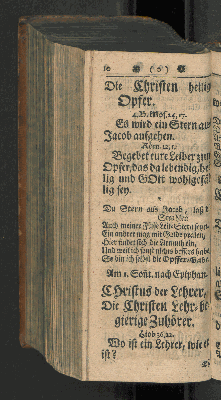 10 ( o )
Die Christen heilig
Opfer.
4. B. Mos. 24, 17.
Es wird ein Stern aus
Jacob aufgehen.
Röm. 12, 1.
Begebet eure Leiber zum
Opfer, das da lebendig, hei
lig und GOtt wohlgefäl
lig sey.
Du Stern aus Jacob, laß d
Auch meiner
Ein andrer mag mit Golde pralen,
Hier findet sich die Armuth ein,
Und weil ich sonst nichts bessers
So bin ich selbst die Opffer-Gabe
Am 1. Sont. nach Epiphan.
CHristus der Lehrer,
Die Christen Lehr-be
gierige Zuhörer.
Hiob 36, 22.
Wo ist ein Lehrer, wie e
ist?